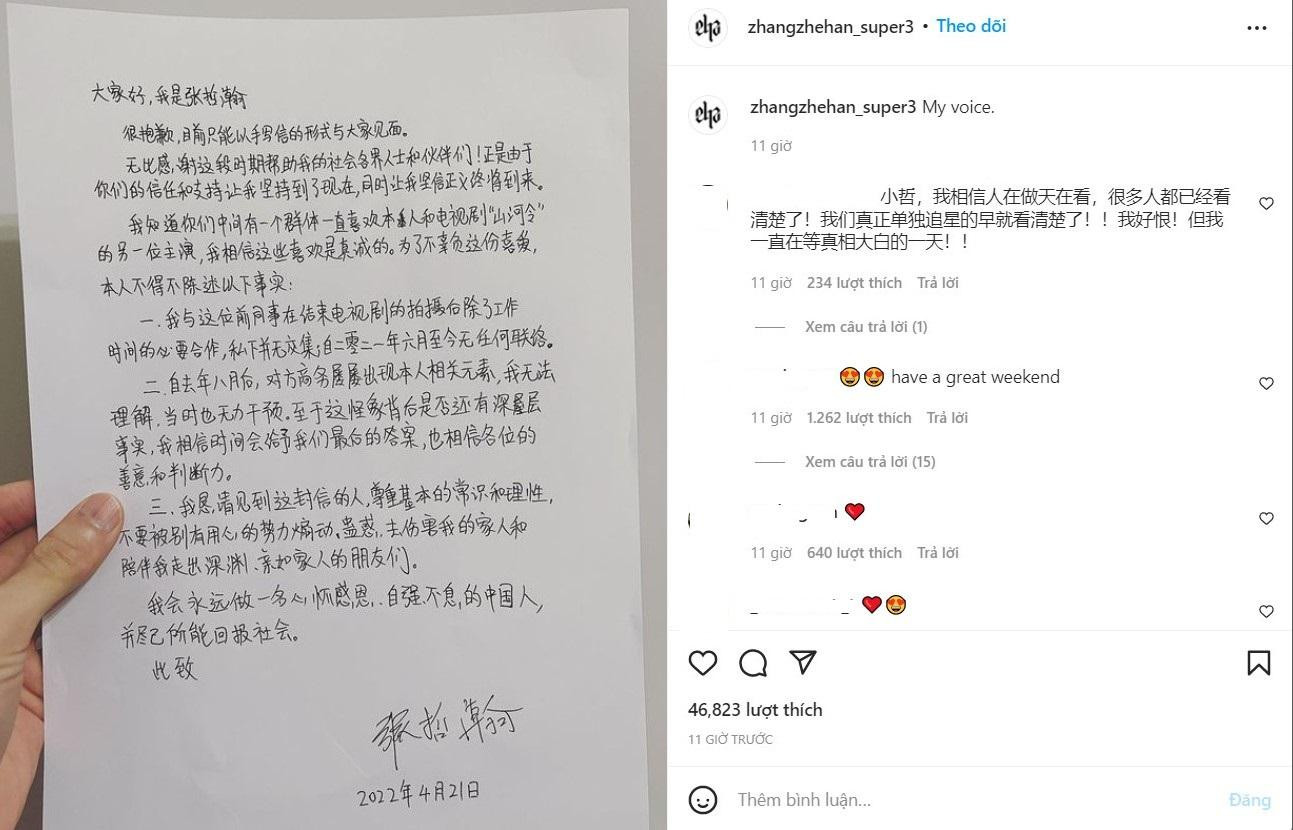 大家好，我是张哲瀚
很抱歉，目前只能以手写信的形式与大家见面。
无比感谢这段时期帮助我的社会各界人士和伙伴们！正是由于
你们的信任和支持让我坚持到了现在，同时让我坚信正义终将到来。
我知道你们中间有一个群体一直喜欢本人和电视剧“山河令”
的另一位主演，我相信这些喜欢是真诚的。为了不辜负这份喜爱，
本人不得不陈述以下事实：
一．我与这位前同事在结束电视剧的拍摄后除了工作
时间的必要合作，私下并无交集；自二零二一年六月至今无任何联络。
二．自去年八月后，对方商务屡屡出现本人相关元素，我无法
理解，当时也无力干预。至于这怪象背后是否还有深层
事实，我相信时间会给予我们最后的答案，也相信各位的
善意和判断力。
三．我恳请见到这封信的人，尊重基本的常识和理性，
不要被别有用心的势力煽动、蛊惑，去伤害我的家人和
陪伴我走出深渊、亲如家人的朋友们。
我会永远做一名心怀感恩、自强不息的中国人，
并尽己所能回报社会。
此致
张哲瀚
2022年4月21日
zhangzhehan_super3 • Theo dõi
zhangzhehan_super3 My voice.
11 giờ
小哲，我相信人在做天在看，很多人都已经看
清楚了！我们真正单独追星的早就看清楚了！！我好恨！但我
一直在等真相大白的一天！！
11 giờ 234 lượt thích Trả lời
Xem câu trả lời (1)
😍😍 have a great weekend
11 giờ 1.262 lượt thích Trả lời
Xem câu trả lời (15)
❤️
11 giờ 640 lượt thích Trả lời
❤️😍
46,823 lượt thích
11 GIỜ TRƯỚC
Thêm bình luận...
Đăng